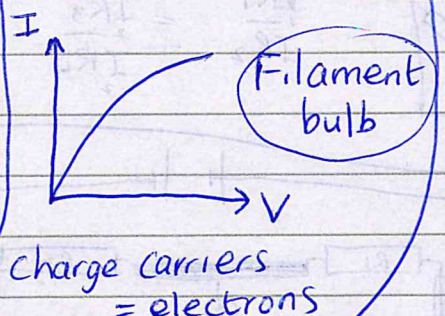 I
Filament
bulb
V
Charge carriers
= electrons